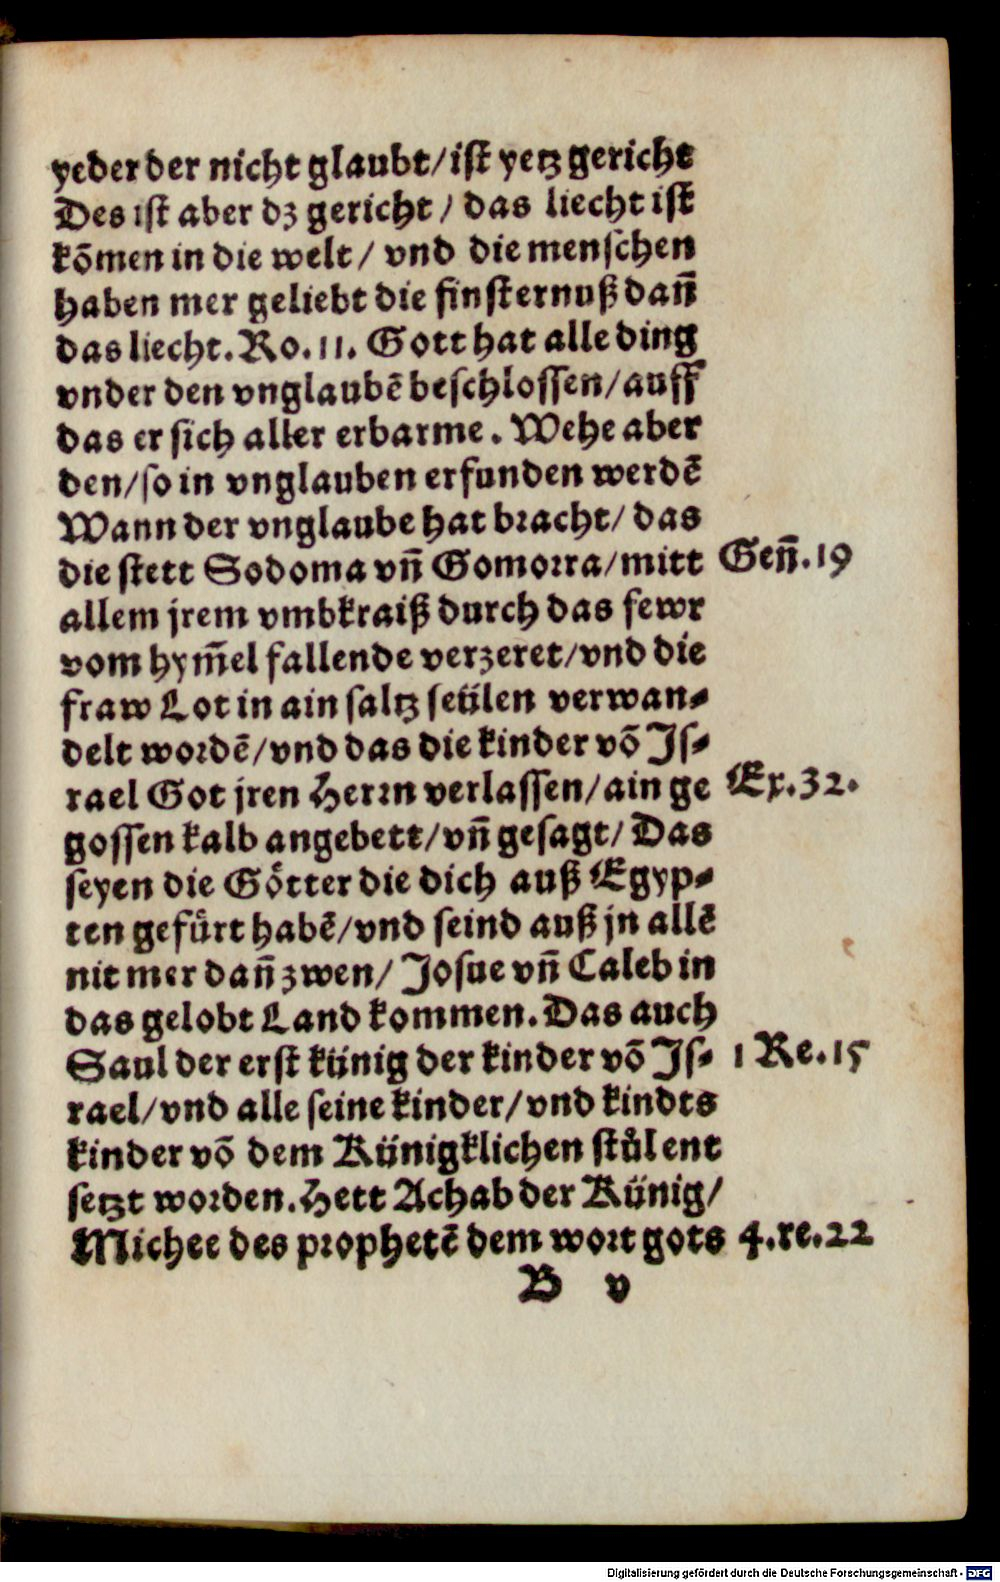 yeder der nicht glaubt/ist yetz gericht
Des ist aber dz gericht/ das liecht ist
kõmen in die welt/ vnd die menschen
haben mer geliebt die finsternuß dañ
das liecht. Ro. 11. Gott hat alle ding
vnder den vnglaubẽ beschlossen/auff
das er sich aller erbarme. Wehe aber
den/so in vnglauben erfunden werdẽ
Wann der vnglaube hat bracht/ das
die stett Sodoma vñ Gomorra/mitt Geñ. 19
allem jrem vmbkraiß durch das fewr
vom hym̃el fallende verzeret/vnd die
fraw Lot in ain saltz seülen verwan-
delt wordẽ/vnd das die kinder võ Js-
rael Got jren Herrn verlassen/ain ge Ex. 32.
gossen kalb angebett/vñ gesagt/ Das
seyen die Götter die dich auß Egyp-
ten gefürt habẽ/vnd seind auß jn allẽ
nit mer dañ zwen/ Josue vñ Caleb in
das gelobt Land kommen. Das auch
Saul der erst künig der kinder võ Js- 1 Re. 15
rael/vnd alle seine kinder/vnd kindts
kinder võ dem Künigklichen stůl ent
setzt worden. Hett Achab der Künig/
Michee des prophetẽ dem wort gots 4. re. 22
B v
Digitalisierung gefördert durch die Deutsche Forschungsgemeinschaft - DFG